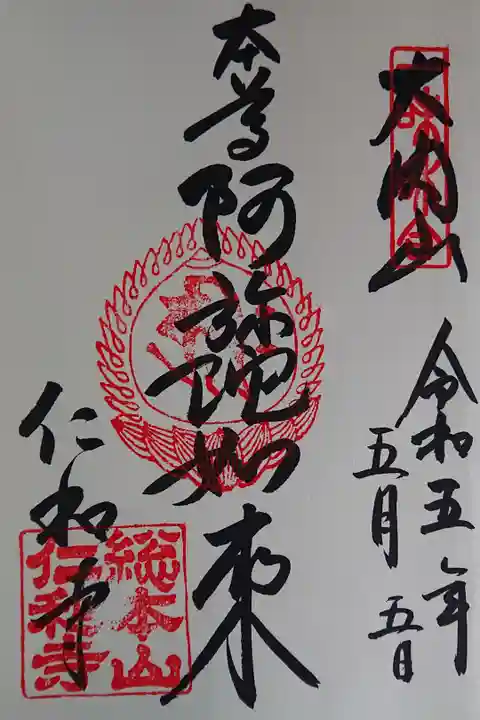 大内山
令和五年
五月五日
本尊阿弥陀如来
仁和寺
総本山
仁和寺